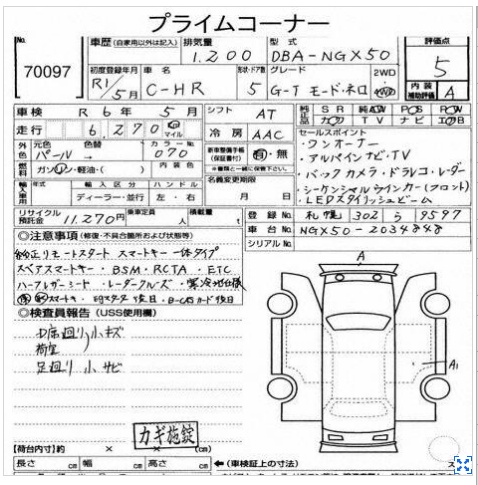 プライムコーナー
No. 70097
車歴 (自家用以外は記入) 排気量 1.200 型式 DBA-NGX50 評価点 5
初度登録年月 R1/5月 車名 C-HR 形状・ドア数 5 グレード G-T モード・ネロ 2WD 4WD 内装補助評価 A
車検 R 6年 5月 シフト AT 純正品 SR 純正AW PS PW
走行 6,270 マイル 冷房 AAC TV ナビ
外色 元色 パール 色替 → カラーNo. 070 内装色
燃料 ガソリン・軽油・( )
新車整備手帳(保証書付) 有・無
セールスポイント
・ワンオーナー
・アルパインナビ・TV
・バックカメラ・ドラレコ・レーダー
・シーケンシャルウインカー(フロント)
・LEDスタイリッシュビーム
輸入車用 年式 輸入区分 ディーラー・並行 ハンドル 左・右
名義変更期限 月 日
リサイクル預託金 11.270円 乗車定員 人 積載量 t
登録No. 札幌 302 ら 9597
車台No. NGX50-2034848
シリアルNo.
◎注意事項 (修復・不具合箇所および状態等)
純正リモートスタート スマートキー一体タイプ
スペアスマートキー・BSM・RCTA・ETC
ハーフレザーシート・レーダークルーズ・寒冷地仕様
スマートキー・後日・B-CASカード後日
◎検査員報告 (USS使用欄)
小キズ
荷室
足廻り 小サビ
カギ施錠
A
A1
【荷台内寸】約 × × (cm)
長さ cm 幅 cm 高さ cm
←(車検証上の寸法)